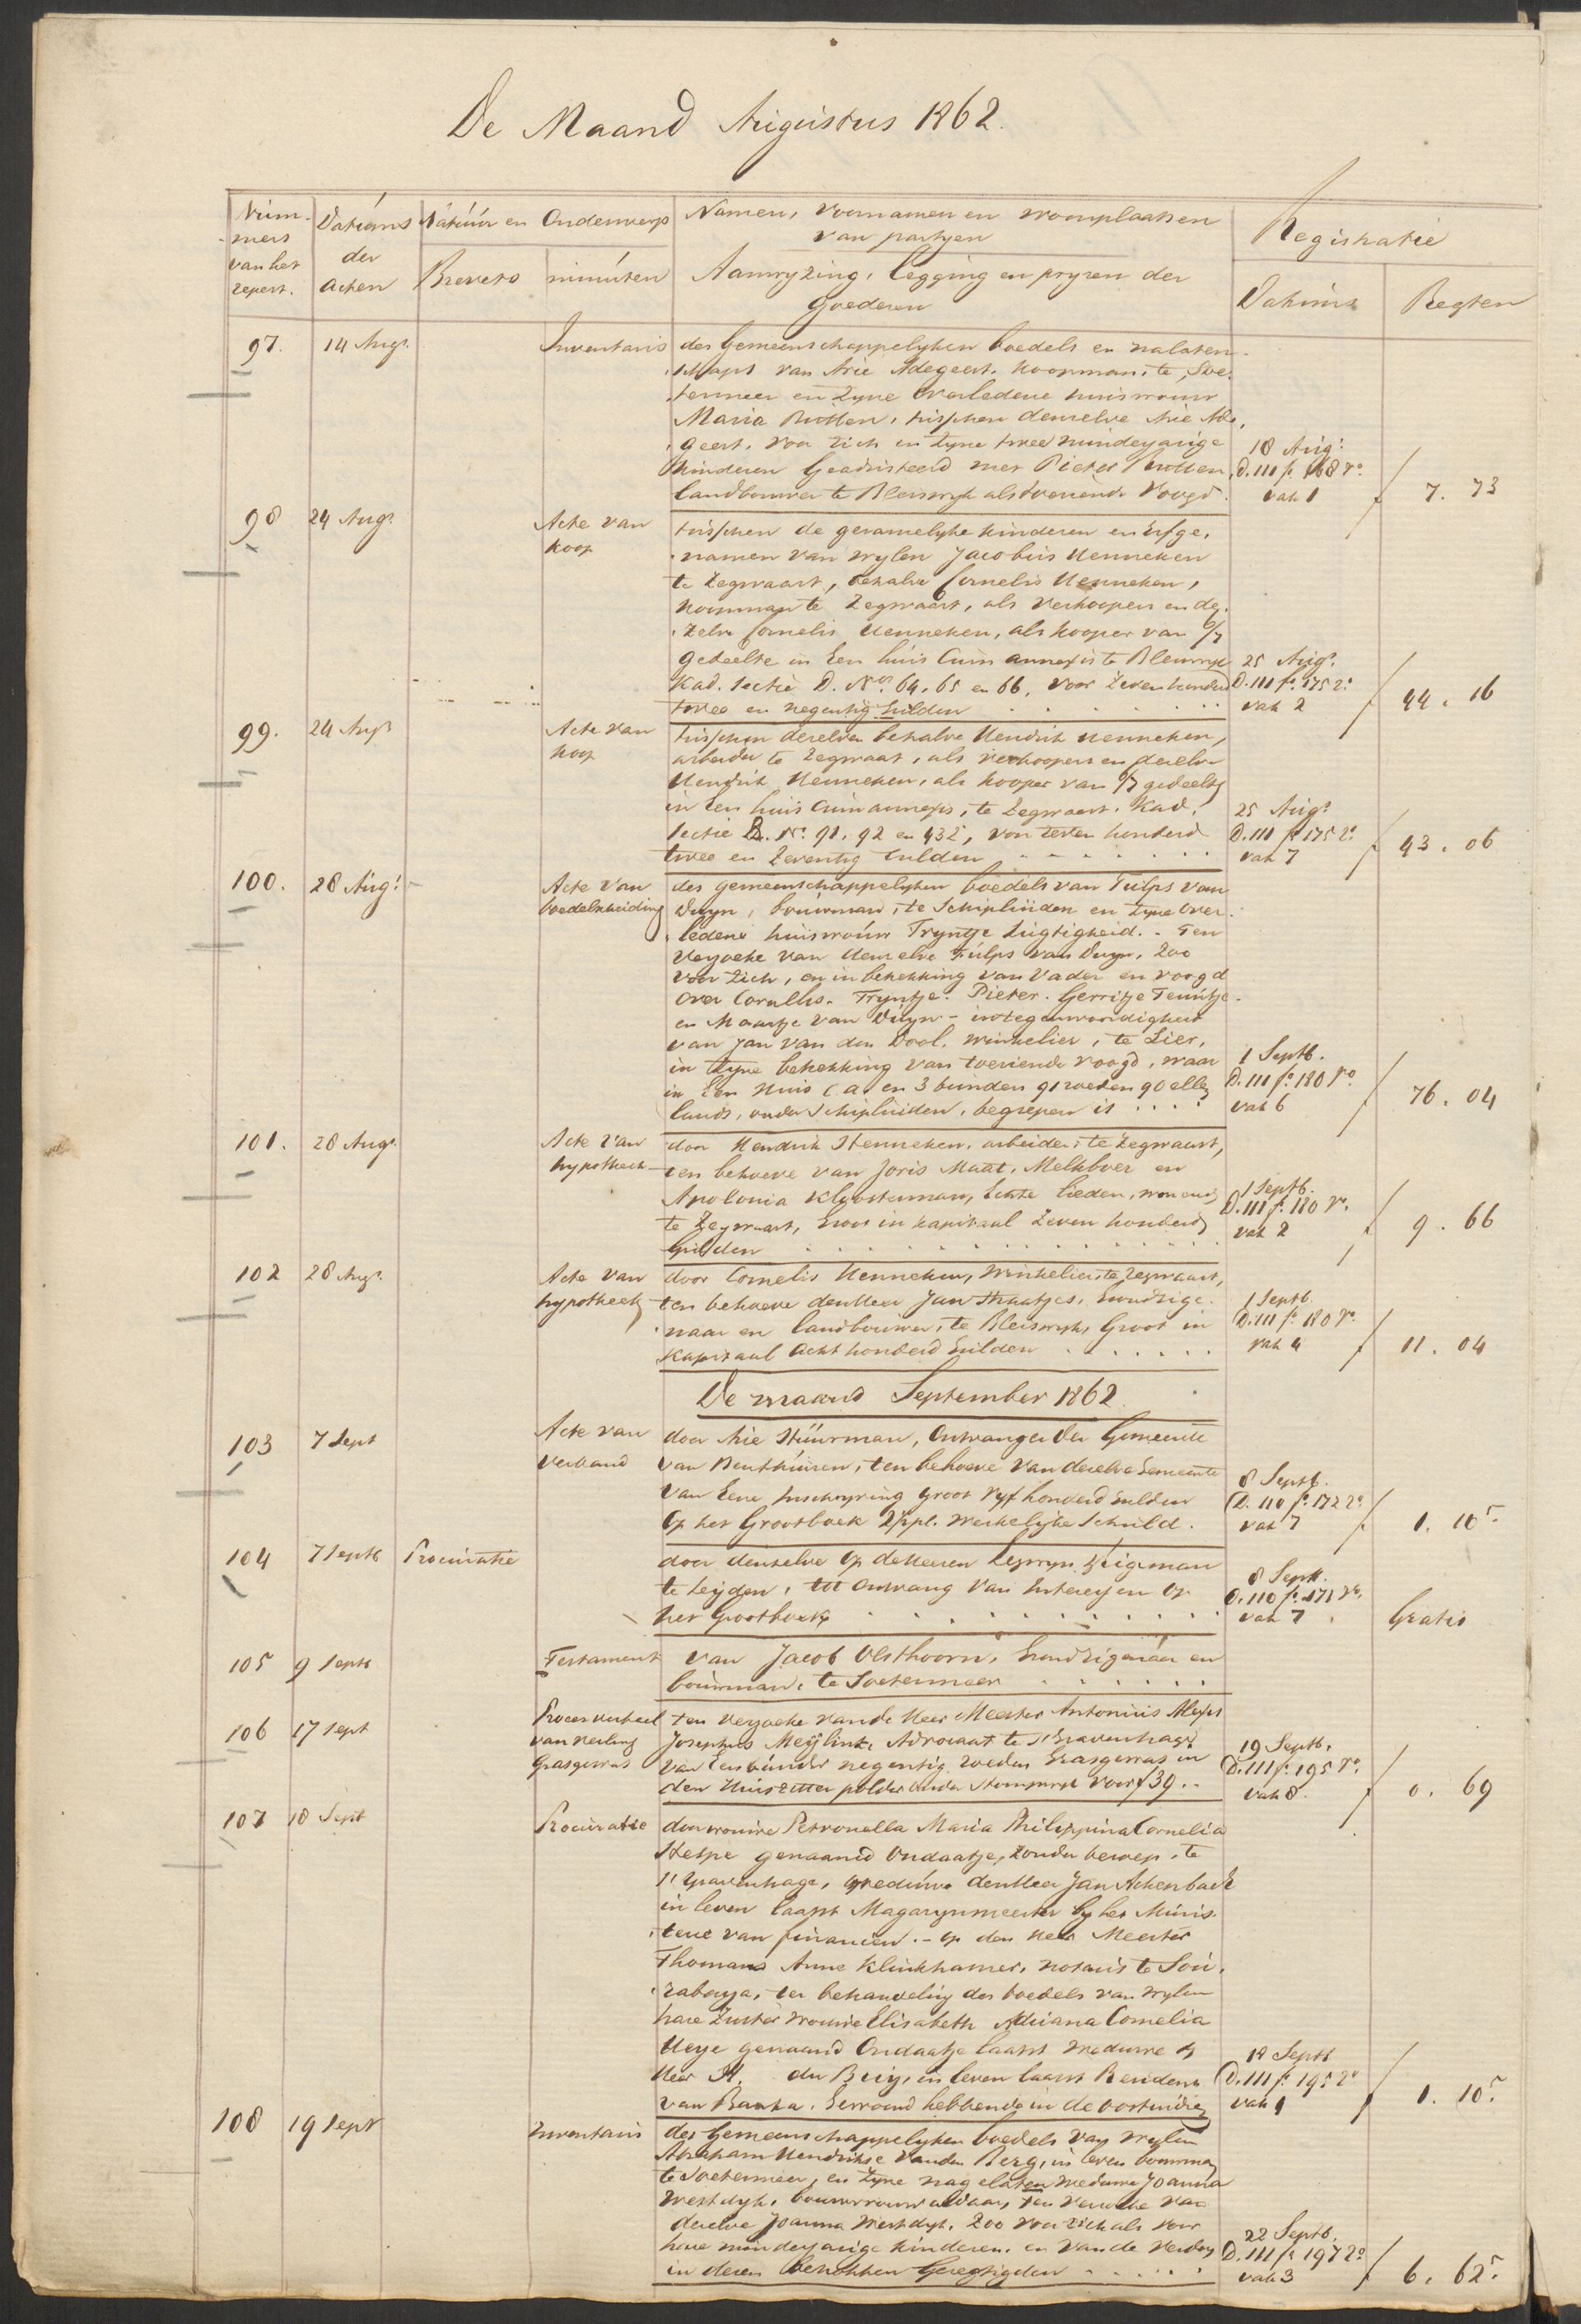 De Maand Augustus 1862.
Num-
mers
van het
repert.
Datums
der
Acten
Natuur en Onderwerp
Brevets
minuten
Namen, voornamen en woonplaatsen
van partyen
Aanwyzing, legging en pryzen der
Goederen
Registratie
Datums
Regten
97. 14 Augs. Inventaris
des Gemeenschappelyken boedels en nalaten-
schaps van Arie Adegeest, koopman, te Soe-
termeer en zyne overledene huisvrouw
Maria Rutten, tusschen denzelve Arie Ade-
geest, voor zich en zyne twee minderjarige
kinderen Geadsisteerd met Pieter Rutten,
landbouwer te Bleiswyk als toeziende Voogd.
18 Augs.
D. 111 fo. 168 ro.
vak 1
f 7. 73
98 24 Augs. Acte van
koop
tusschen de gezamelyke kinderen en Erfge-
namen van wylen Jacobus Henneken
te Zegwaart, behalve Cornelis Henneken,
koopman te Zegwaart, als verkoopers en de-
zelve Cornelis Henneken, als kooper van 6/7
gedeelte in Een huis Cum annexis te Bleiswyk
Kad. sectie D. Nos. 64, 65 en 66, voor zeven honderd
twee en negentig Gulden
25 Augs.
D. 111 fo. 175 2o.
vak 2
f 44. 16
99. 24 Augs Acte van
koop
tusschen dezelven behalve Hendrik Henneken,
arbeider te Zegwaart, als verkoopers en dezelve
Hendrik Henneken, als kooper van 6/7 gedeelte
in Een huis cum annexis, te Zegwaart. Kad.
sectie B. No. 91, 92 en 432, voor zeven honderd
twee en zeventig Gulden
25 Augs
D. 111 fo. 175 2o.
vak 7
f 43. 06
100. 28 Augs. Acte van
boedelscheiding
des gemeenschappelyken boedels van Tulps van
Duyn, bouwman, te Schipluiden en zyne over-
ledene huisvrouw Tryntje Lugtigheid. - Ten
verzoeke van denzelve Tulps van Duyn, zoo
voor zich, en in betrekking van Vader en voogd
over Cornelis. Tryntje. Pieter. Gerritje Teuntje.
en Maartje van Duyn - in tegenwoordigheid
van Jan van den Dool. winkelier, te Lier,
in zyne betrekking van toeziende voogd, waar
in Een Huis C a en 3 bunders 91 roeden 90 ellen
lands, onder Schipluiden, begrepen is
1 Septb.
D. 111 fo. 180 ro.
vak 6
f 76. 04
101. 28 Augs. Acte van
hypotheek
door Hendrik Henneken, arbeider, te Zegwaart,
ten behoeve van Joris Maat, Melkboer en
Apolonia Kloosterman, Echte lieden, wonende
te Zegwaart, Groot in kapitaal Zeven honderd
Gulden
1 Septb.
D. 111 fo. 180 ro.
vak 2
f 9. 66
102 28 Augs. Acte van
hypotheek
door Cornelis Henneken, winkelier, te Zegwaart,
ten behoeve den Heer Jan Straatjes, Grondeige-
naar en landbouwer, te Bleiswyk, Groot in
kapitaal Acht honderd Gulden
1 Septb.
D. 111 fo. 180 ro.
vak 4
f 11. 04
De maand September 1862.
103 7 Sept Acte van
verband
door Arie Stuurman, Ontvanger der Gemeente
van Benthuizen, ten behoeve van dezelve Gemeente
van Eene Inschryving groot vyf honderd Gulden
op het Grootboek 2½ pC. werkelyke Schuld.
8 Septb.
D. 110 fo. 172 2o.
vak 7
f 1. 10 5.
104 7 Septb Procuratie
door denzelve op de Heeren
te Leyden, tot ontvang van Interessen op
het Grootboek
8 Septb.
D. 110 fo. 171 vo.
vak 7
Gratis
105 9 Septb Testament
van Jacob Olsthoorn, Grondeigenaar en
bouwman, te Soetermeer
106 17 Sept Proces verbaal
van veiling
Grasgewas
ten verzoeke van de Heer Meester Antonius Alexis
Josephus Meÿlink, Advocaat te s'Gravenhage
van Een bunder negentig roeden Grasgewas in
den Huiszitten polder onder Stompwyk voor f 39.-
19 Septb.
D. 111 fo. 195 ro.
vak 8.
f 0. 69
107 18 Sept Procuratie
door vrouwe Petronella Maria Philippina Cornelia
genaamd Ondaatje, zonder beroep, te
s'Gravenhage, weduwe den Heer Jan Achenbach
in leven laatst Magazynmeester by het Minis-
terie van financien. - op den Heer Meester
Thomas Anne Klinkhamer, notaris te Soe-
rabaya, ter behandeling des boedels van wylen
hare Zuster vrouwe Elisabeth Adriana Cornelia
genaamd Ondaatje laatst weduwe den
Heer H. du Buy, in leven laatst Resident
van Banka. Gewoond hebbende in de oostindien
18 Septb
D. 111 fo. 195 2o
vak 1
f 1. 10 5.
108 19 Sept Inventaris
des Gemeenschappelyken boedels van wylen
Abraham Hendrikse van den Berg, in leven bouwman
te Soetermeer, en zyne nagelaten weduwe Joanna
Westdyk, bouwvrouw aldaar, ten verzoeke van
dezelve Joanna Westdyk, zoo voor zich als voor
hare minderjarige kinderen, en van de verdere
in dezen betrokken Geregtigden
22 Septb.
D. 111 fo. 197 2o
vak 3
f 6. 62 5.